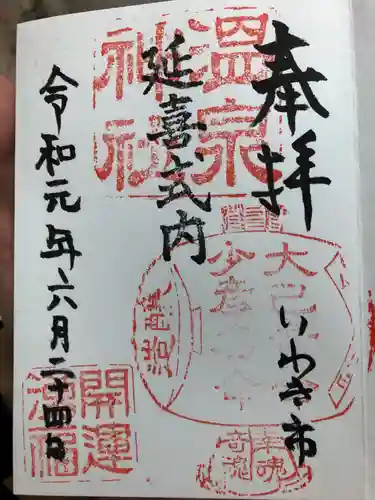 奉拝
いわき市
延喜式内
令和元年六月二十四日
温泉
神社
開運
幸魂
奇魂